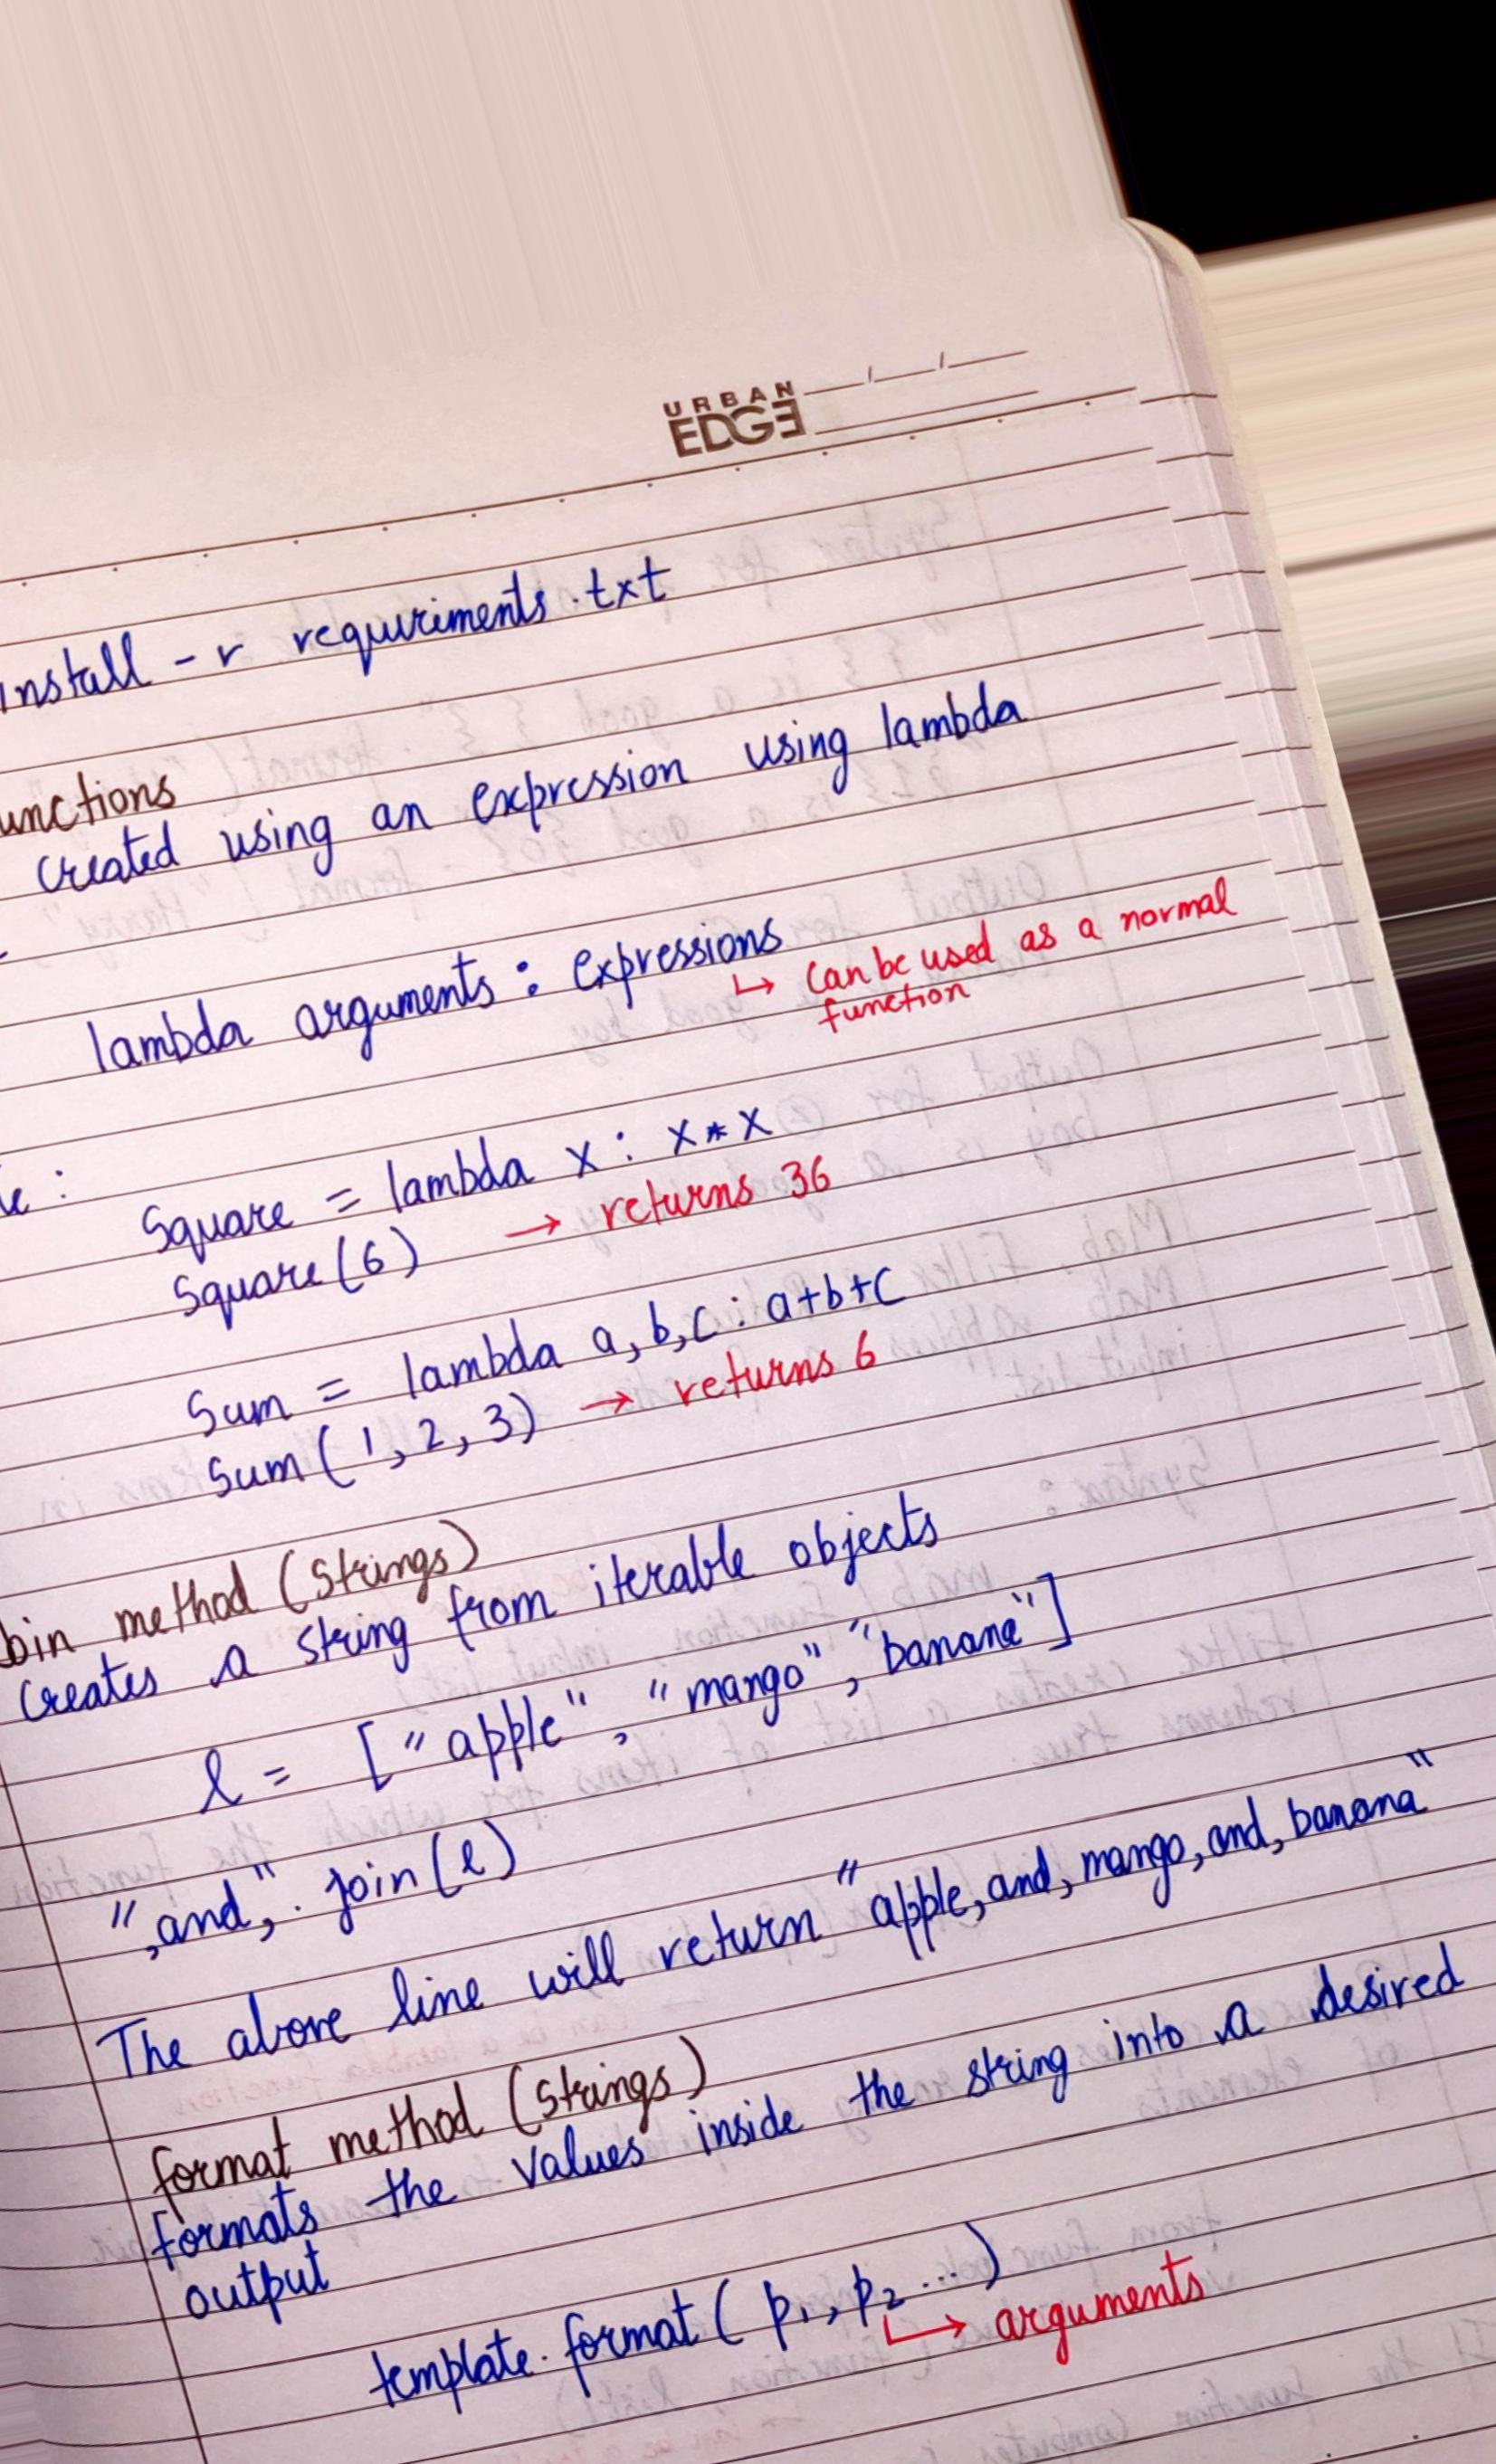 URBAN
EDGE
install -r requriments.txt
unctions
created using an expression using lambda
lambda arguments : expressions
↳ can be used as a normal
function
le :
Square = lambda x : x*x
Square(6) → returns 36
Sum = lambda a,b,c : a+b+c
Sum (1, 2, 3) → returns 6
oin method (strings)
Creates a string from iterable objects
l = ["apple", "mango", "banana"]
",and,". join(l)
The above line will return "apple,and,mango,and,banana"
format method (strings)
formats the values inside the string into a desired
output
template.format( p1, p2 ...)
↳ arguments